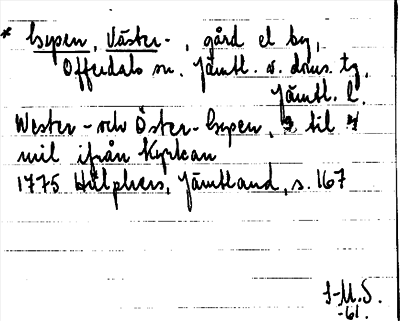 * Espen, Väster- , gård el by,
Offerdals sn. Jämtl. v. doms. tg,
Jämtl. l.
Wester- och Öster-Espen, 3 til 4
mil ifrån Kyrkan
1775 Hülphers, Jämtland, s. 167
I-M.S.
-61.